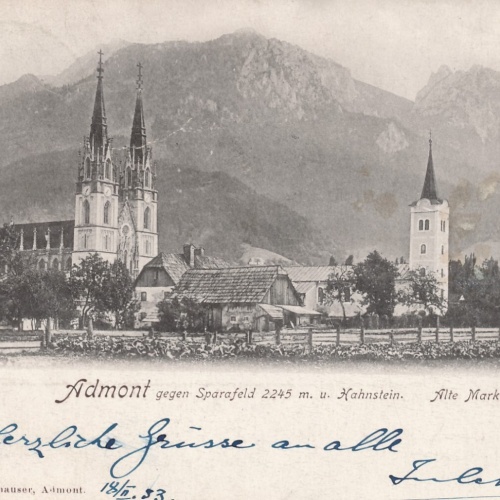 Admont gegen Sparafeld 2245 m. u. Kahnstein. Alte Mark
erzliche Grüsse an alle
hauser, Admont. 18/II.